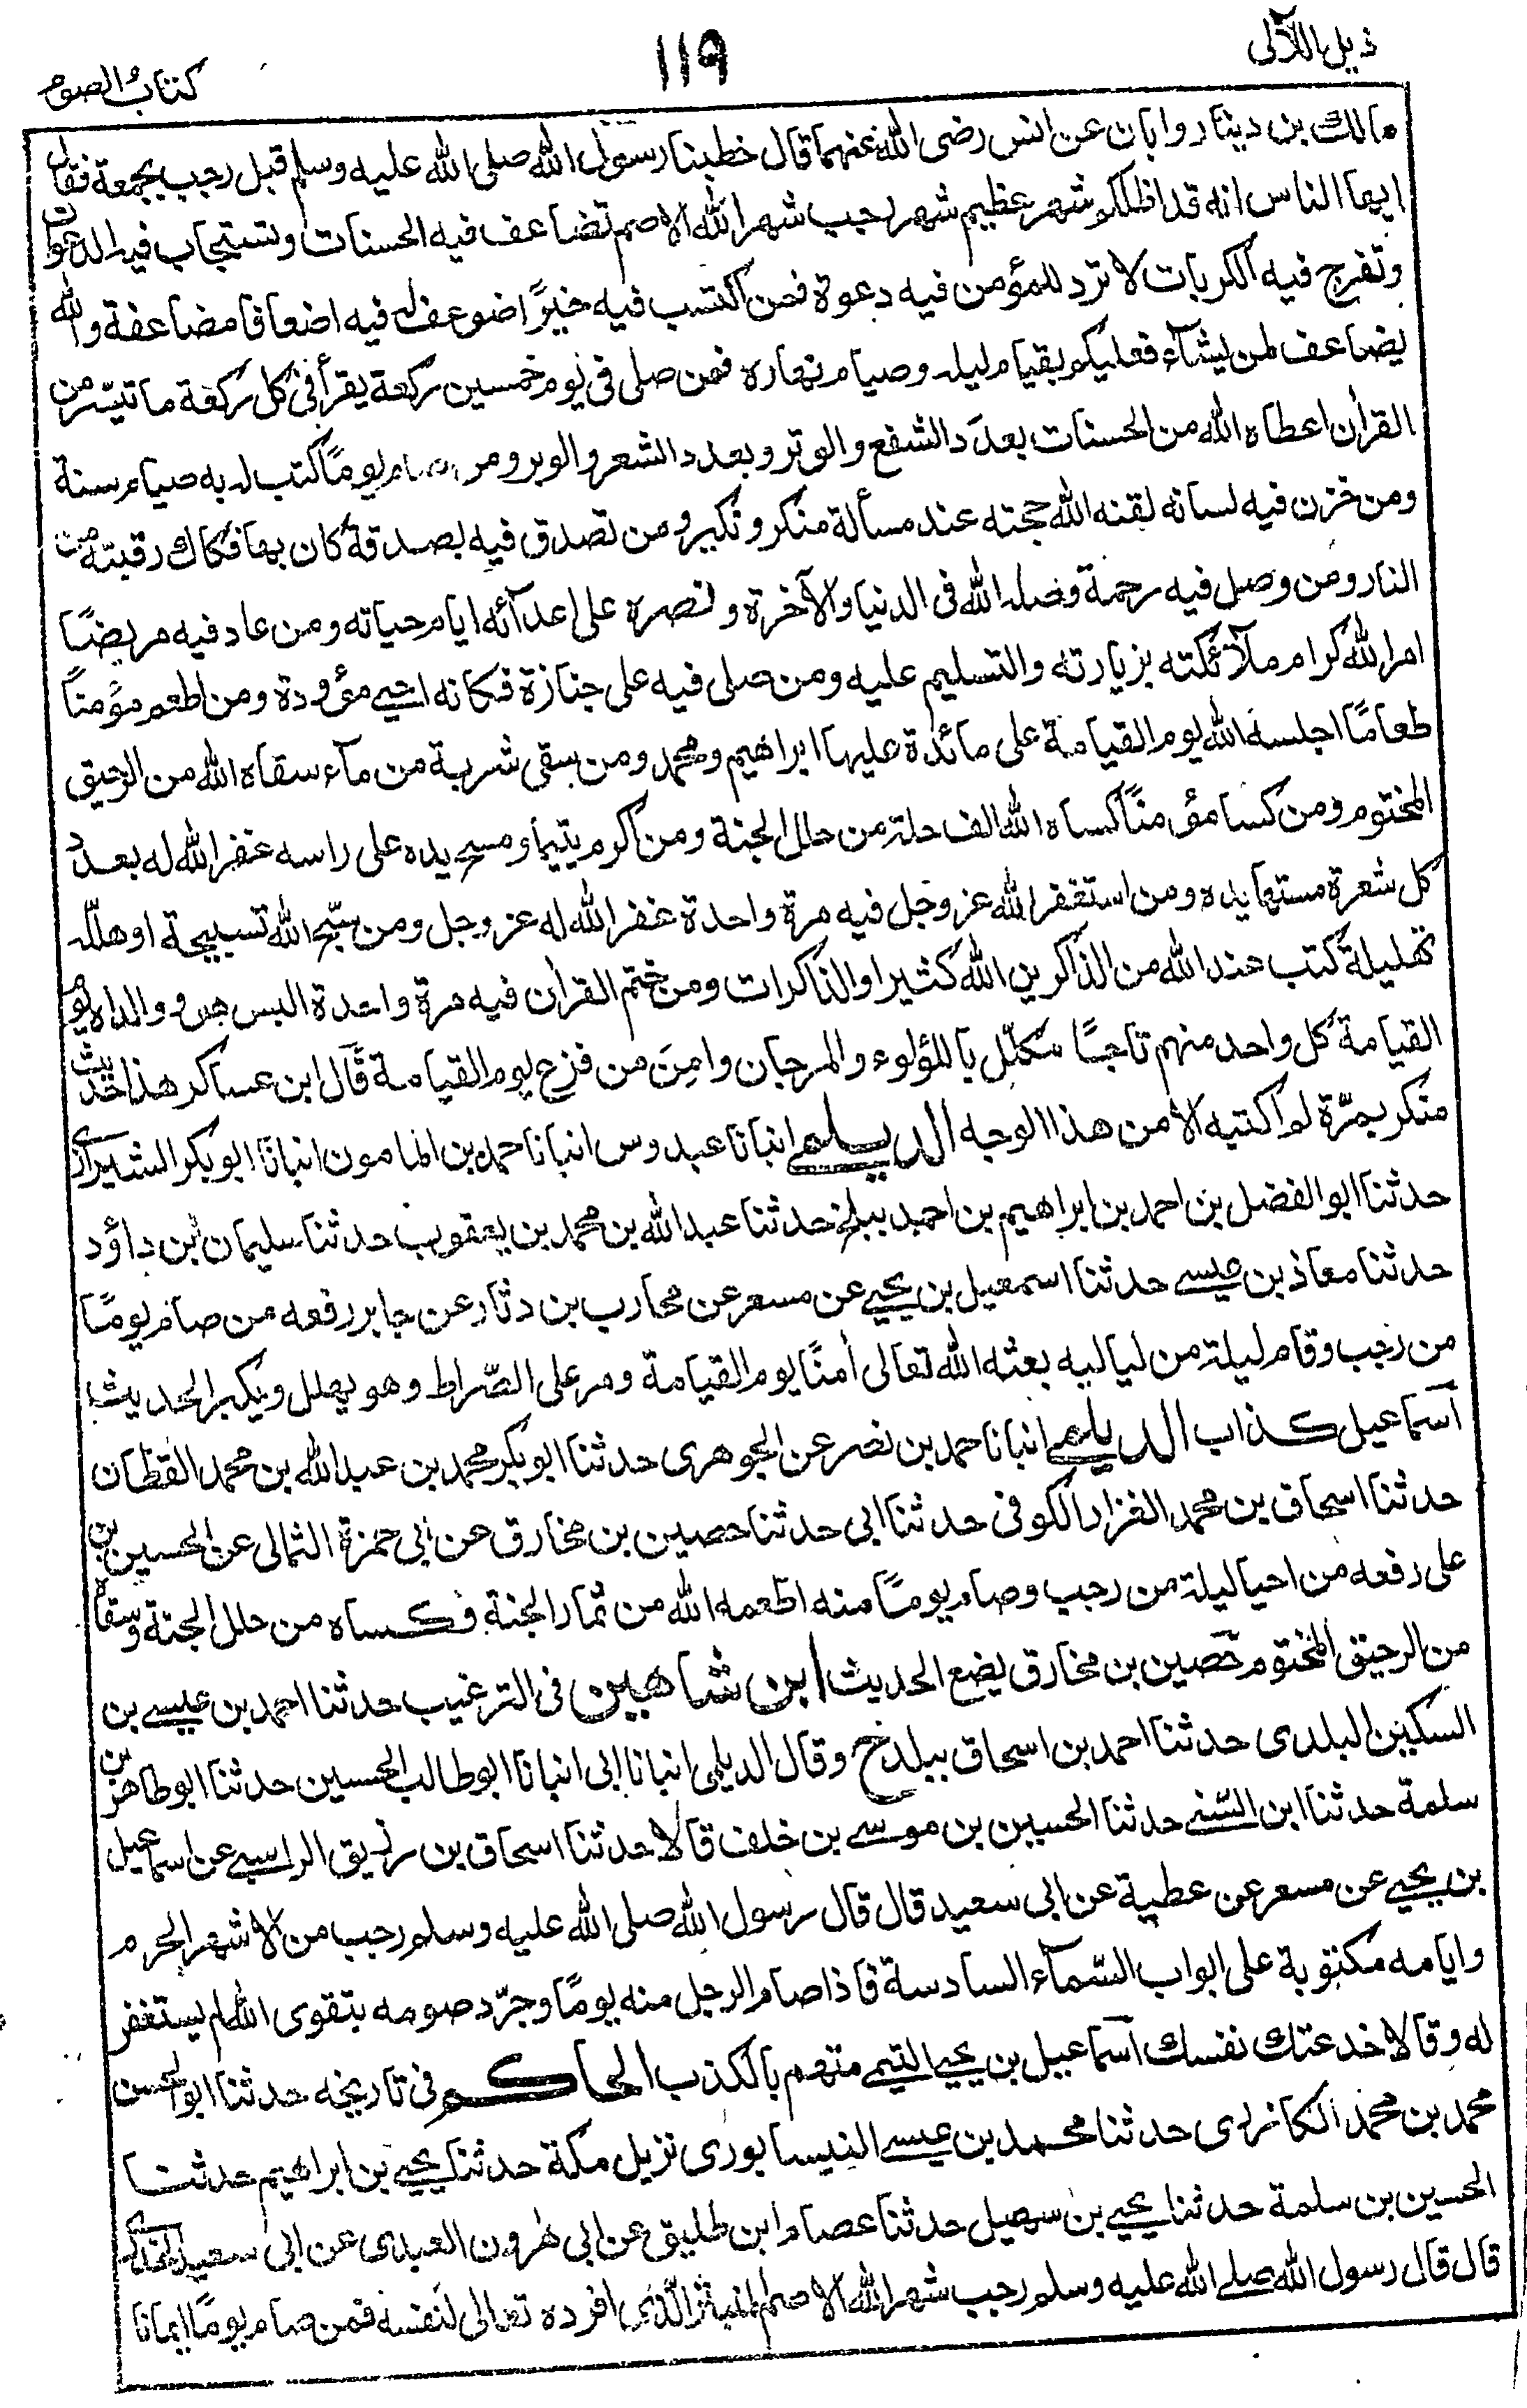 ذيل اللآلى
١١٩
كتاب الصوم
مالك بن دينار وابان عن انس رضى الله عنهما قال خطبنا رسول الله صلى الله عليه وسلم قبل رجب بجمعة فقال
ايها الناس انه قد اظلكم شهر عظيم شهر رجب شهر الله الاصم تضاعف فيه الحسنات وتستجاب فيه الدعوات
وتفرج فيه الكربات لا ترد للمؤمن فيه دعوة فمن اكتسب فيه خيرًا ضوعف له فيه اضعافا مضاعفة والله
يضاعف لمن يشآء فعليكم بقيام ليله وصيام نهاره فمن صلى فى يوم خمسين ركعة يقرأ فى كل ركعة ما تيسّر من
القرأن اعطاه الله من الحسنات بعدَد الشفع والوتر وبعدد الشعر والوبر ومن صام يومًا كتب له به صيام سنة
ومن خزن فيه لسانه لقنه الله حجته عند مسألة منكر ونكير ومن تصدق فيه بصدقة كان بها فكاك رقبته من
النار ومن وصل فيه رحمة وصله الله فى الدنيا والآخرة ونصره على اعدآئه ايام حياته ومن عاد فيه مريضًا
امر الله كرام ملآئكته بزيارته والتسليم عليه ومن صلى فيه على جنازة فكانه احيے مئودة ومن اطعم مؤمنًا
طعامًا اجلسه الله يوم القيامة على مائدة عليها ابراهيم ومحمد ومن سقى شربة من مآء سقاه الله من الرحيق
المختوم ومن كسا مؤمنًا كساه الله الف حلة من حلل الجنة ومن اكرم يتيمًا ومسح يده على راسه غفر الله له بعدد
كل شعرة مستها يده ومن استغفر الله عز وجل فيه مرة واحدة غفر الله له عز وجل ومن سبّح الله تسبيحة او هلّله
تهليلة كتب عند الله من الذاكرين الله كثيرا والذاكرات ومن ختم القرأن فيه مرة واحدة البس هو ووالداه يوم
القيامة كل واحد منهم تاجًا مكلّل باللؤلوء والمرجان وامِنَ من فزع يوم القيامة قال ابن عساكر هذا حديث
منكر بمرّة لم اكتبه الا من هذا الوجه الديلمے انبانا عبدوس انبانا حمد بن المامون انبانا ابو بكر الشيرازى
حدثنا ابو الفضل بن احمد بن ابراهيم بن احمد ببلخ حدثنا عبد الله بن محمد بن يعقوب حدثنا سليمان بن داؤد
حدثنا معاذ بن عيسے حدثنا اسمعيل بن يحيے عن مسعر عن محارب بن دثار عن جابر رفعه من صام يومًا
من رجب وقام ليلة من لياليه بعثه الله تعالى أمنًا يوم القيامة ومر على الصّراط وهو يهلل ويكبر الحديث
اسماعيل كذاب الديلمے انبانا حمد بن نصر عن الجوهرى حدثنا ابو بكر محمد بن عبد الله بن محمد القطان
حدثنا اسحاق بن محمد الغزار الكوفى حدثنا ابى حدثنا حصين بن مخارق عن ابى حمزة الثمالى عن الحسين بن
على رفعه من احيا ليلة من رجب وصام يومًا منه اطعمه الله من ثمار الجنة فكساه من حلل الجنة وسقاه
من الرحيق المختوم حصين بن مخارق يضع الحديث ابن شاهين فى الترغيب حدثنا احمد بن عيسے بن
السكين البلدى حدثنا احمد بن اسحاق ببلد ح وقال الديلمى انبانا ابى انبانا ابو طالب الحسين حدثنا ابو طاهر بن
سلمة حدثنا ابن السّنے حدثنا الحسين بن موسے بن خلف قالا حدثنا اسحاق بن زريق الراسبے عن اسماعيل
بن يحيے عن مسعر عن عطية عن ابى سعيد قال قال رسول الله صلى الله عليه وسلم رجب من الاشهر الحرم
وايامه مكتوبة على ابواب السّمآء السادسة فاذا صام الرجل منه يومًا وجرّد صومه بتقوى الله لم يستغفر
له وقالا خدعتك نفسك اسماعيل بن يحيے التيمے متهم بالكذب الحاكم فى تاريخه حدثنا ابو الحسن
محمد بن محمد الكازرى حدثنا محمد بن عيسے النيسابورى نزيل مكة حدثنا يحيے بن ابراهيم حدثنا
الحسين بن سلمة حدثنا يحيے بن سهيل حدثنا عصام ابن طليق عن ابى هرون العبدى عن ابى سعيد الخدرى
قال قال رسول الله صلے الله عليه وسلم رجب شهر الله الاصم الذى افرده تعالى لنفسه فمن صام يومًا ايمانا